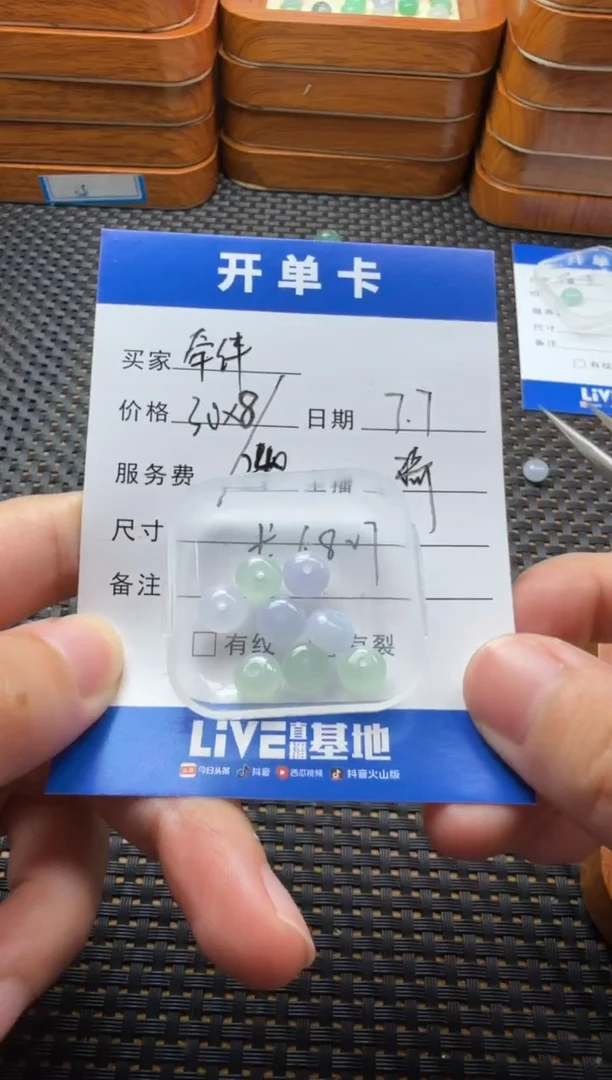 开单卡
买家 牵伴
价格 30x8 日期 7.7
服务费 240 主播
尺寸 长 6.8
备注
有纹 裂
LIVE直播基地
今日头条 抖音 西瓜视频 抖音火山版
开单
尺寸
备注
有纹
LIV